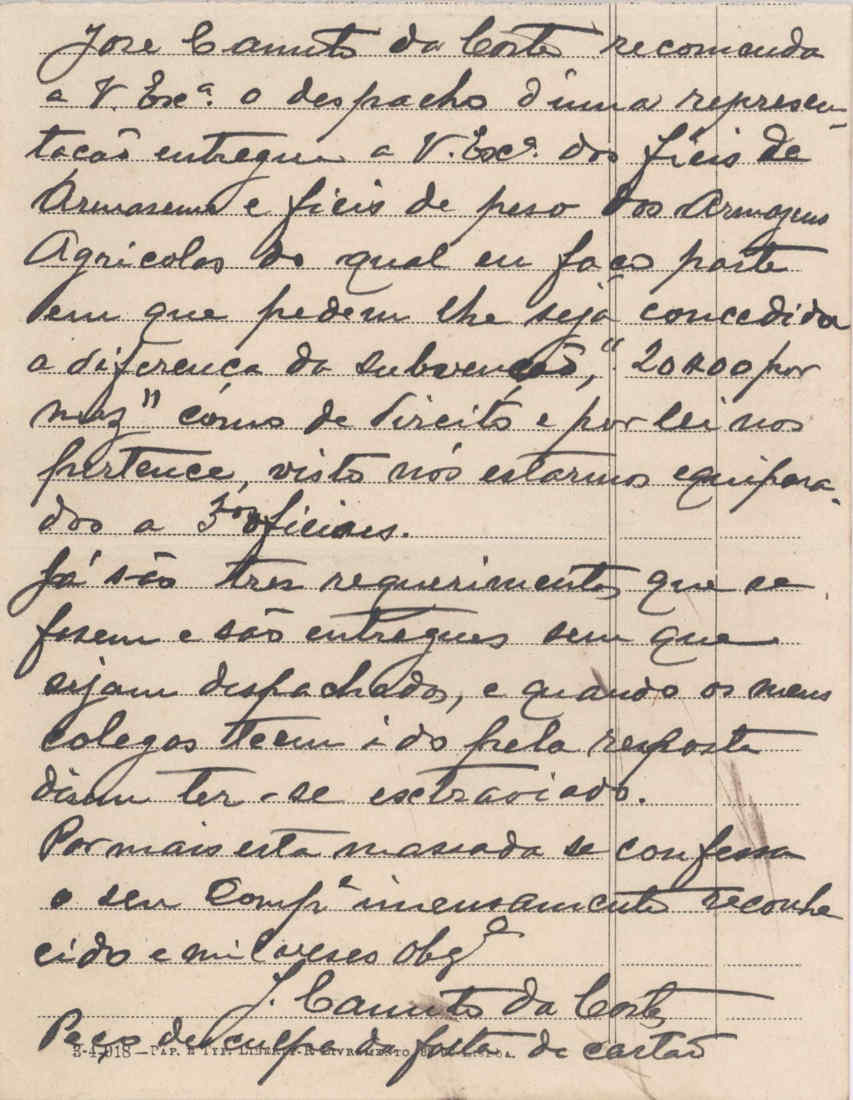 José Canuto da Costa recomenda
a V. Exª. o despacho d'uma represen-
tação entregue a V. Excª. dos fieis de
Armasens e fieis de peso dos Armazens
Agricolas do qual eu faço parte
em que pedem lhe seja concedida
a diferença da subvenção, "20$00 por
mez" cómo de direito e por lei nos
pertence, visto nós estarmos equipara-
dos a 3ºs oficiaes.
Já são tres requerimentos que se
fasem e são entregues sem que
sejam despachados, e quando os meus
colegas teem ido pela resposta
disem ter-se extraviado.
Por mais esta massada se confessa
o seu Compº imensamente reconhe
cido e mil veses obgº
J. Canuto da Costa
Peço desculpa da falta de cartão
3-4-918 — PAP. E TYP. LIBERTY-R LIVRAMENTO,